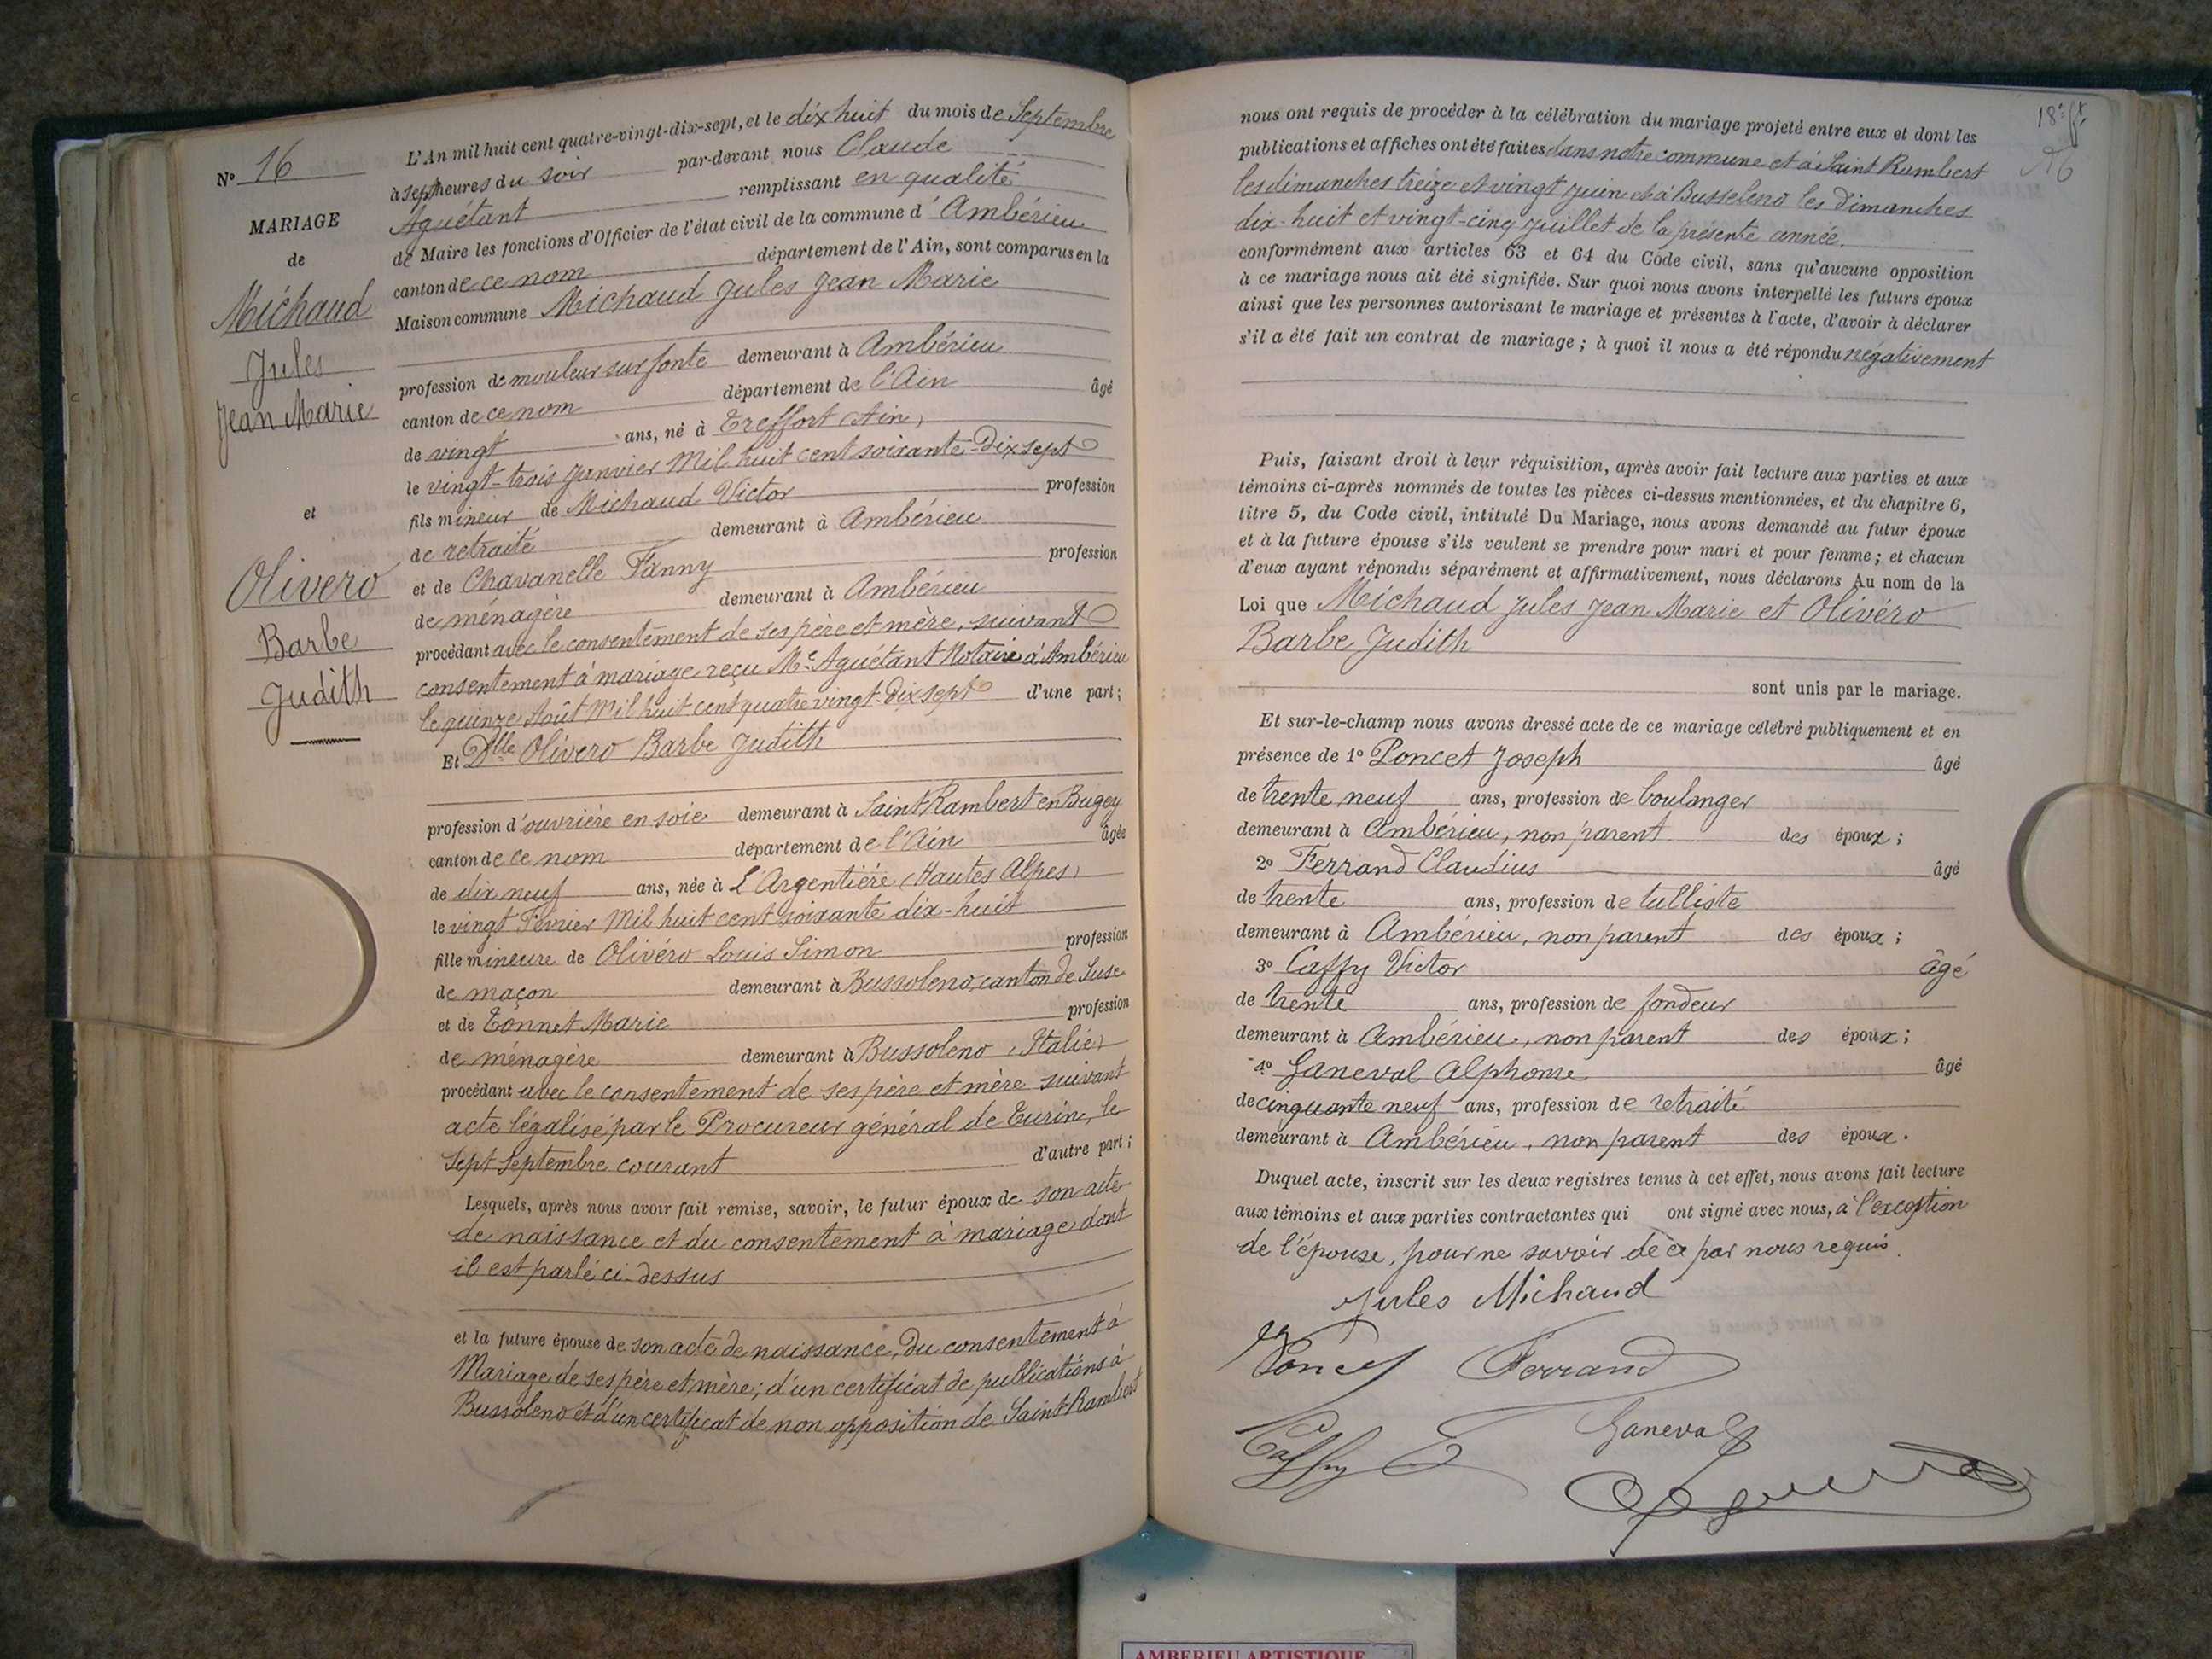 N° 16
MARIAGE
de
Michaud
Jules
Jean Marie
et
Olivero
Barbe
Judith
L'An mil huit cent quatre-vingt-dix-sept, et le dix huit du mois de Septembre
à sept heures du soir par-devant nous Claude
Aguétant remplissant en qualité
de Maire les fonctions d'Officier de l'état civil de la commune d'Ambérieu
canton de ce nom département de l'Ain, sont comparus en la
Maison commune Michaud Jules Jean Marie
profession de mouleur sur fonte demeurant à Ambérieu
canton de ce nom département de l'Ain âgé
de vingt ans, né à Treffort (Ain)
le vingt-trois Janvier Mil huit cent soixante-Dix sept
fils mineur de Michaud Victor profession
de retraité demeurant à Ambérieu
et de Chavanelle Fanny profession
de ménagère demeurant à Ambérieu
procédant avec le consentement de ses père et mère, suivant
consentement à mariage reçu Me Aguétant Notaire à Ambérieu
le quinze Août Mil huit cent quatre vingt-Dix sept d'une part ;
Et Dlle Olivero Barbe Judith
profession d'ouvrière en soie demeurant à Saint-Rambert en Bugey
canton de ce nom département de l'Ain âgée
de dix neuf ans, née à L'Argentière (Hautes Alpes)
le vingt Février Mil huit cent soixante dix-huit
fille mineure de Olivéro Louis Simon profession
de maçon demeurant à Bussoleno, canton de Suse
et de Tonnet Marie profession
de ménagère demeurant à Bussoleno (Italie)
procédant avec le consentement de ses père et mère suivant
acte légalisé par le Procureur général de Turin, le
sept Septembre courant d'autre part ;
Lesquels, après nous avoir fait remise, savoir, le futur époux de son acte
de naissance et du consentement à mariage dont
il est parlé ci-dessus
et la future épouse de son acte de naissance, Du consentement à
Mariage de ses père et mère ; d'un certificat de publications à
Bussoleno et d'un certificat de non opposition de Saint-Rambert
nous ont requis de procéder à la célébration du mariage projeté entre eux et dont les
publications et affiches ont été faites dans notre commune et à Saint Rambert
les dimanches treize et vingt Juin et à Bussoleno les Dimanches
dix-huit et vingt-cinq Juillet de la présente année.
conformément aux articles 63 et 64 du Code civil, sans qu'aucune opposition
à ce mariage nous ait été signifiée. Sur quoi nous avons interpellé les futurs époux
ainsi que les personnes autorisant le mariage et présentes à l'acte, d'avoir à déclarer
s'il a été fait un contrat de mariage ; à quoi il nous a été répondu négativement
Puis, faisant droit à leur réquisition, après avoir fait lecture aux parties et aux
témoins ci-après nommés de toutes les pièces ci-dessus mentionnées, et du chapitre 6,
titre 5, du Code civil, intitulé Du Mariage, nous avons demandé au futur époux
et à la future épouse s'ils veulent se prendre pour mari et pour femme ; et chacun
d'eux ayant répondu séparément et affirmativement, nous déclarons Au nom de la
Loi que Michaud Jules Jean Marie et Olivéro
Barbe Judith
sont unis par le mariage.
Et sur-le-champ nous avons dressé acte de ce mariage célébré publiquement et en
présence de 1° Poncet Joseph âgé
de trente neuf ans, profession de boulanger
demeurant à Ambérieu, non parent des époux ;
2° Ferrand Claudius âgé
de trente ans, profession de tulliste
demeurant à Ambérieu, non parent des époux ;
3° Caffy Victor âgé
de trente ans, profession de fondeur
demeurant à Ambérieu, non parent des époux ;
4° Ganeval Alphonse âgé
de cinquante neuf ans, profession de retraité
demeurant à Ambérieu, non parent des époux.
Duquel acte, inscrit sur les deux registres tenus à cet effet, nous avons fait lecture
aux témoins et aux parties contractantes qui ont signé avec nous, à l'exception
de l'épouse, pour ne savoir de ce par nous requis.
Jules Michaud
Poncet Ferrand
Caffy Ganeval
AMBERIEU ARTISTIQUE